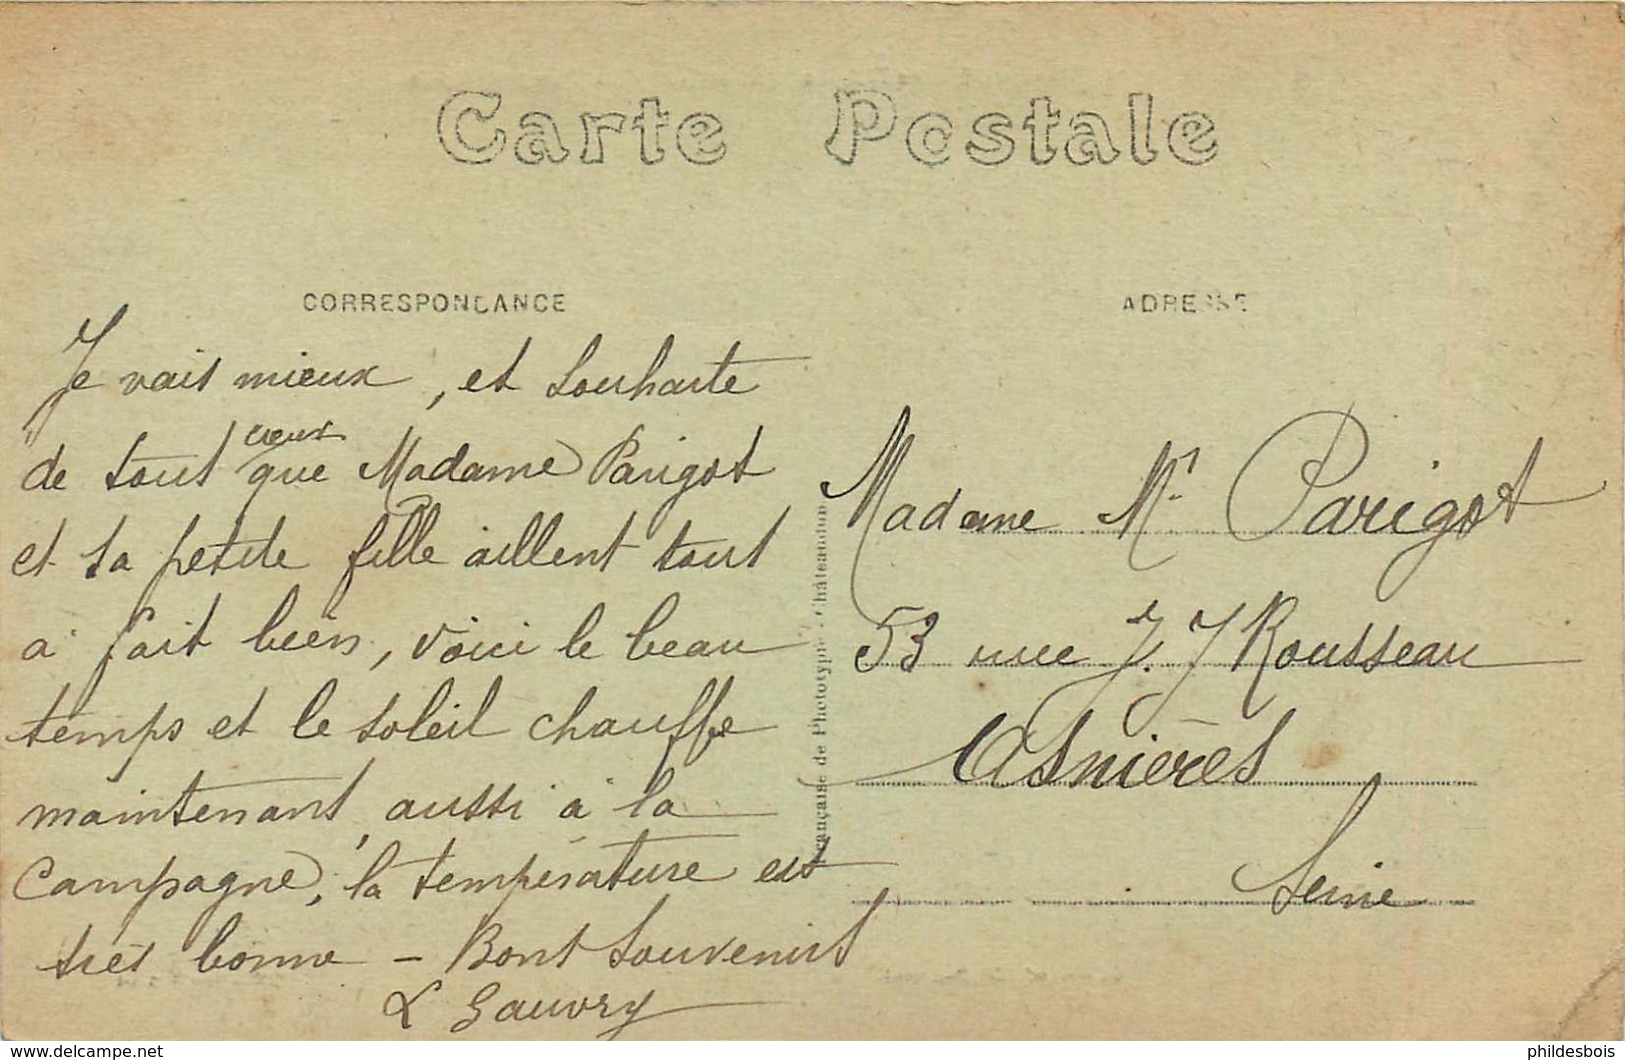 Carte Postale
CORRESPONDANCE
Je vais mieux, et souhaite
de tout cœur
que Madame Parigot
et sa petite fille aillent tout
à fait bien, voici le beau
temps et le soleil chauffe
maintenant, aussi à la
campagne, la température est
très bonne – Bons souvenirs
L Gauvry
Française de Phototypie - Châteaudun
ADRESSE
Madame Mᶦ Parigot
53 rue J. J Rousseau
Asnières
Seine
delcampe.net
phildesbois